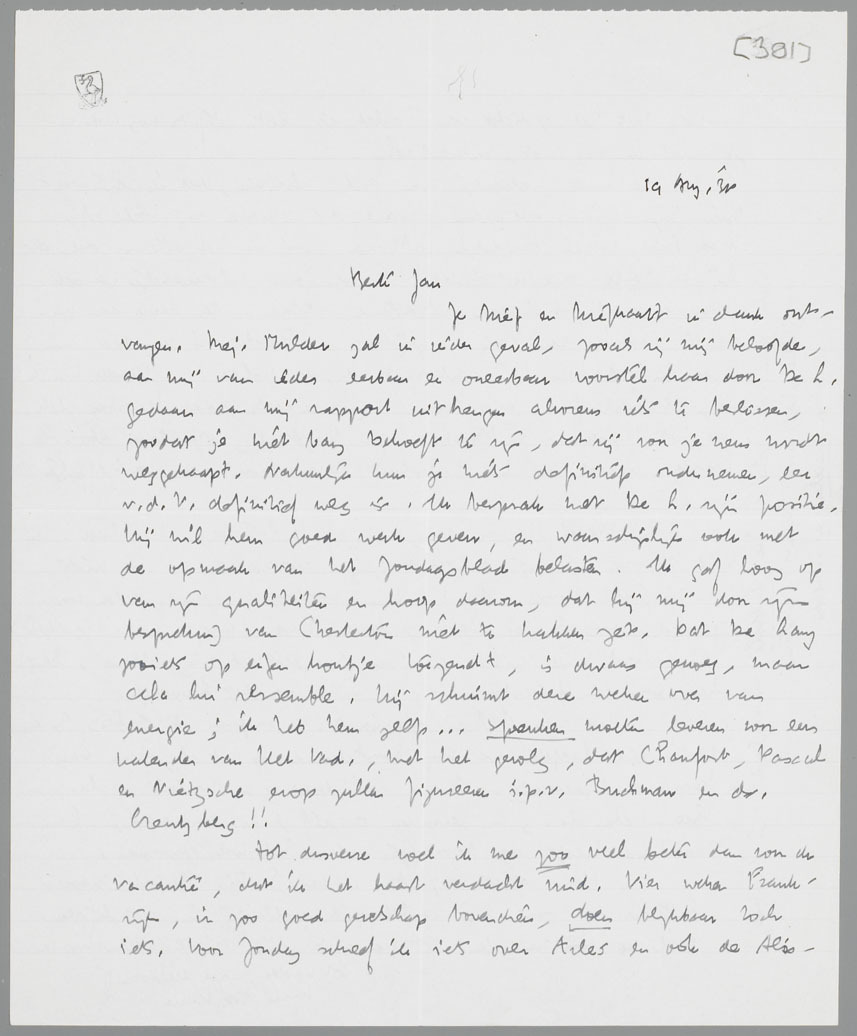 [381]
19 Aug. '38
Beste Jan
Je brief en briefkaart in dank ont-
vangen. Mej. Mulder zal in ieder geval, zooals zij mij beloofde,
aan mij van ieder eerbaar en oneerbaar voorstel haar door De L.
gedaan aan mij rapport uitbrengen alvorens iets te beslissen,
zoodat je niet bang behoeft te zijn, dat zij voor je neus wordt
weggekaapt. Natuurlijk kun je niets definitiefs ondernemen, eer
v.d. V. definitief weg is. Ik besprak met De L. zijn positie.
Hij wil hem goed werk geven, en waarschijnlijk ook met
de opmaak van het Zondagsblad belasten. Ik gaf hoog op
van zijn qualiteiten en hoop daarom, dat hij mij door zijn
bespreking van Chesterton niet te kakken zet. Dat De Lang
zooiets op eigen houtje toezendt, is dwaas genoeg, maar
cela lui ressemble. Hij schuimt deze weken over van
energie; ik heb hem zelfs... spreuken moeten leveren voor een
kalender van Het Vad., met het gevolg, dat Chamfort, Pascal
en Nietzsche erop zullen figureeren i.p.v. Buchman en ds.
Creutzberg!!
Tot dusverre voel ik me zoo veel beter dan voor de
vacantie, dat ik het haast verdacht vind. Vier weken Frank-
rijk, in zoo goed gezelschap bovendien, doen blijkbaar toch
iets. Voor Zondag schreef ik iets over Arles en ook de Alis-